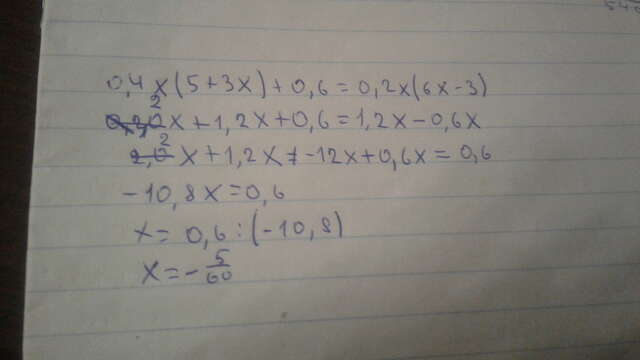 0,4x(5+3x)+0,6=0,2x(6x-3)
2x+1,2x+0,6=1,2x-0,6x
2x+1,2x-12x+0,6x=0,6
-10,8x=0,6
x=0,6:(-10,8)
x=-5/60